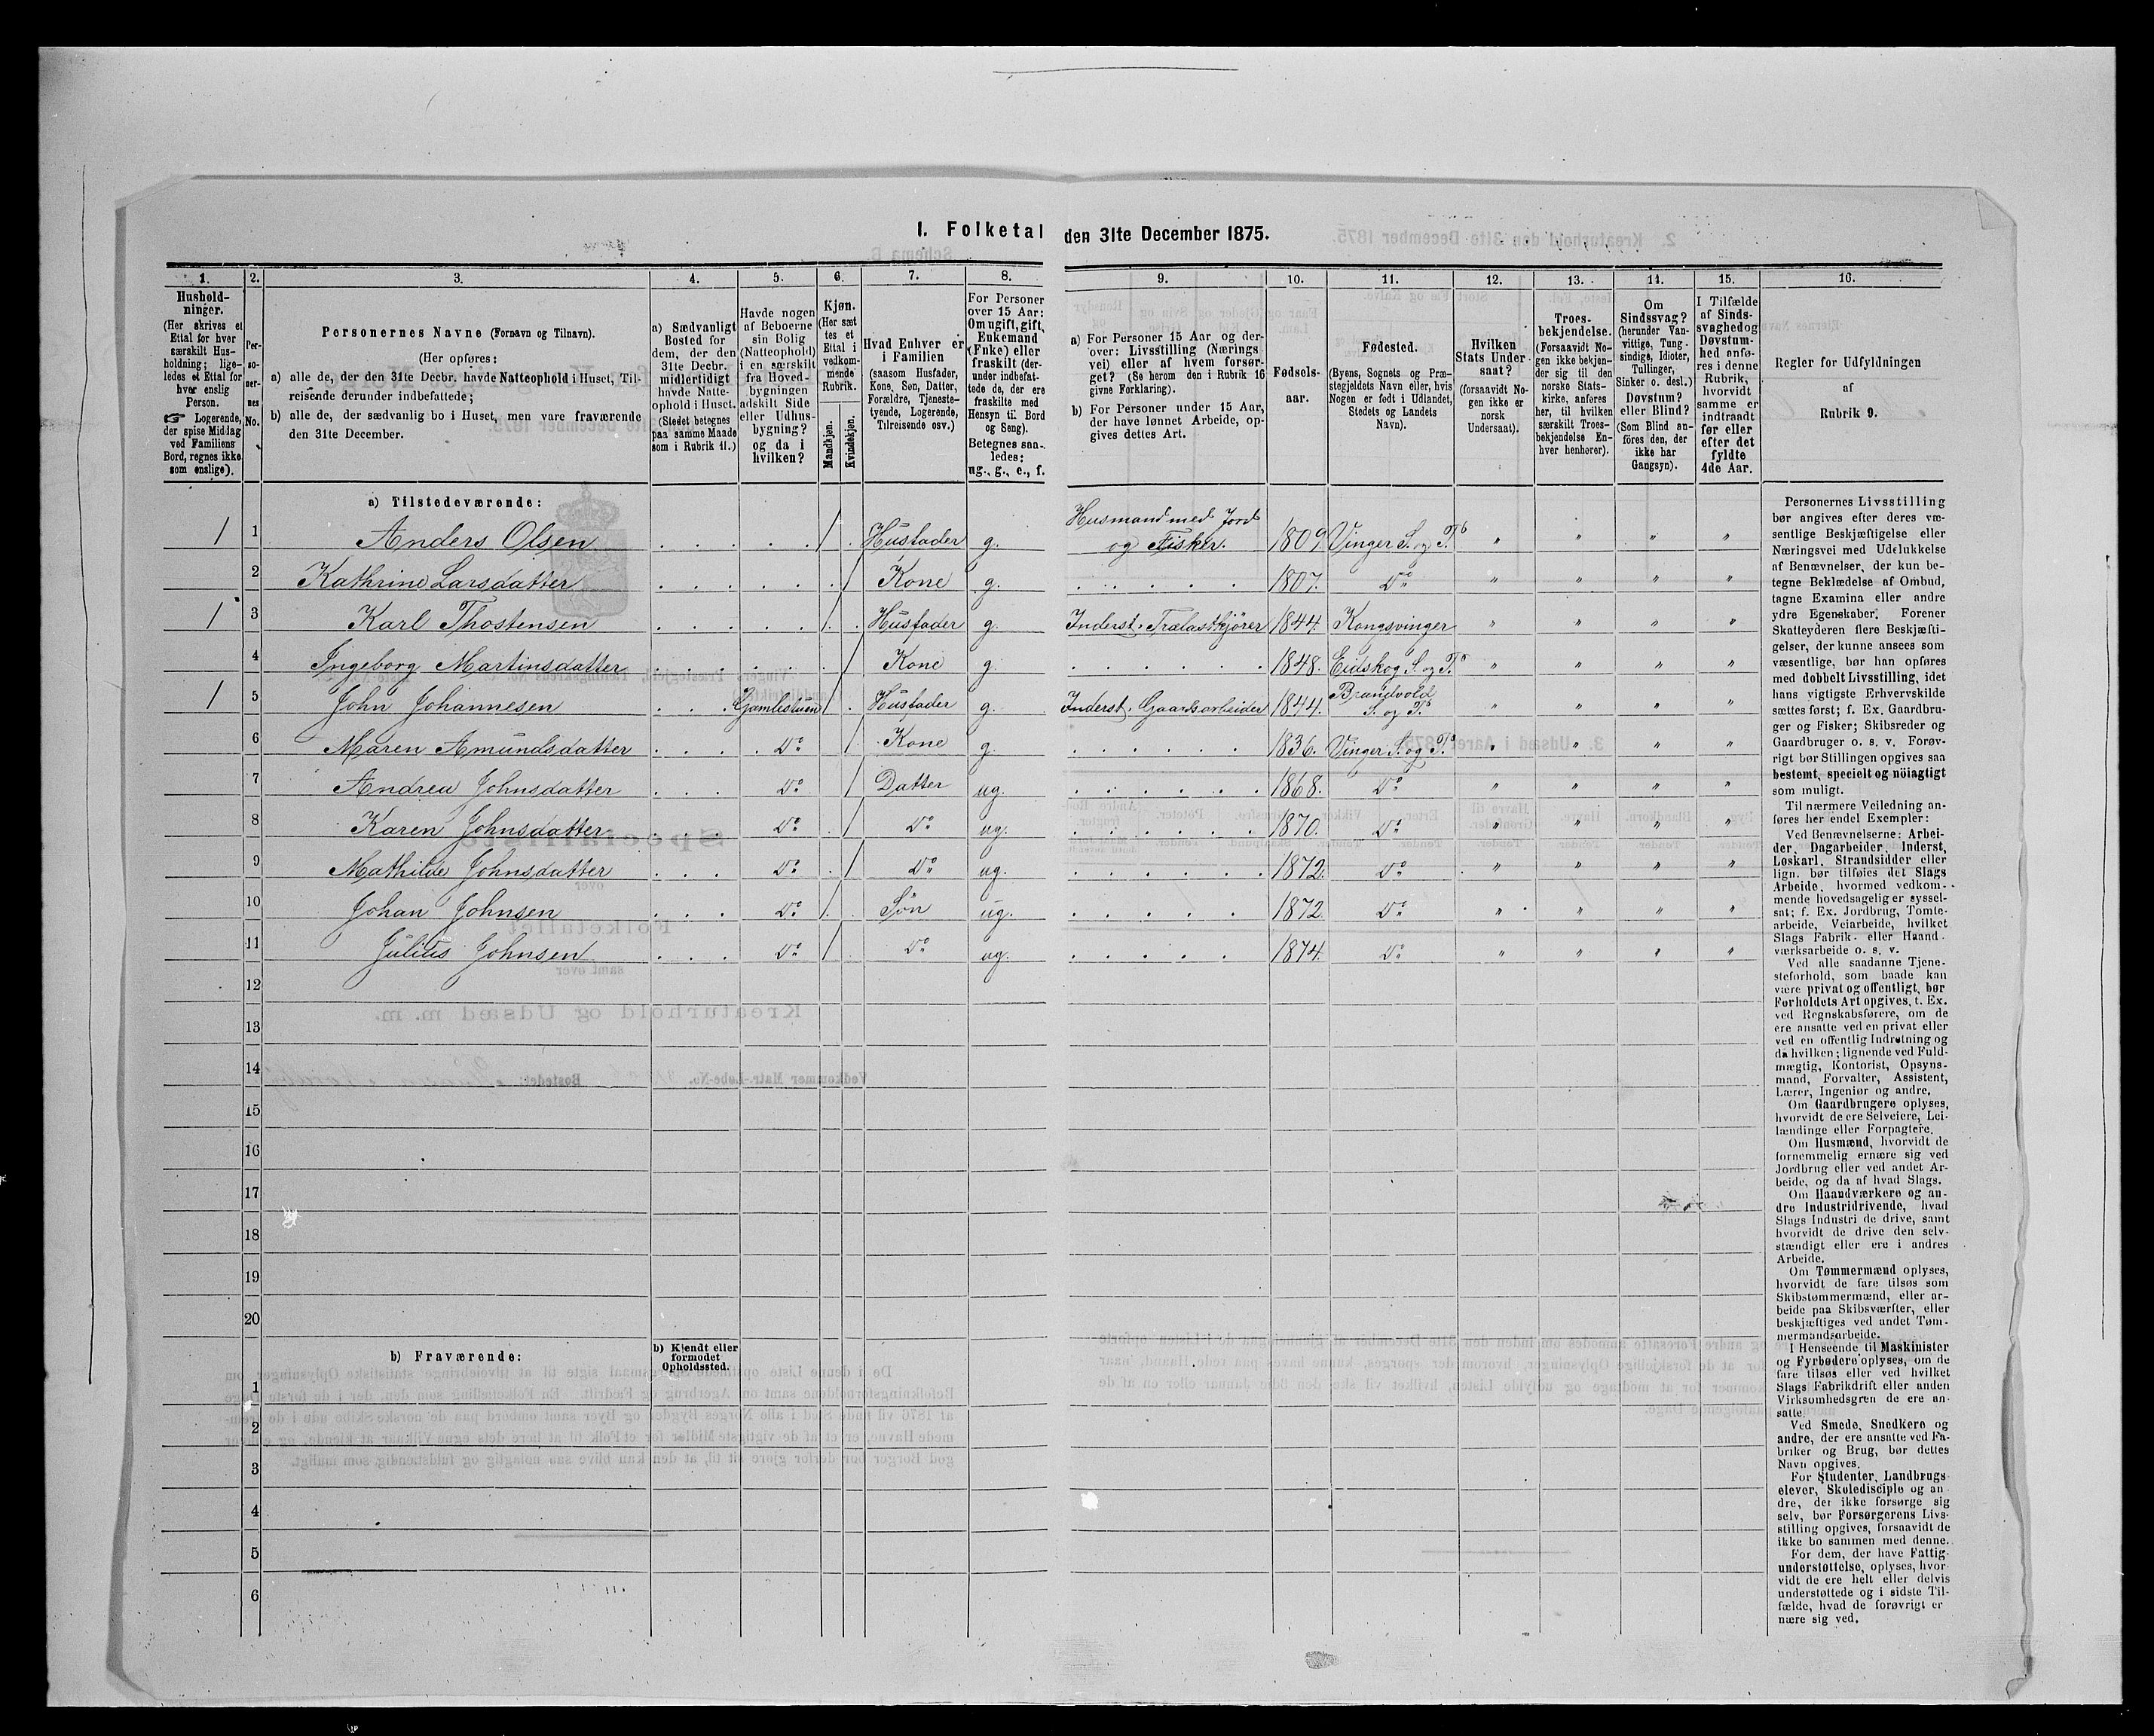 1. Folketal den 31te December 1875.
1. 2. 3. 4. 5. 6. 7. 8. 9. 10. 11. 12. 13. 14. 15. 16.
Hushold-
ninger.
(Her skrives et
Ettal for hver
særskilt Hus-
holdning; lige-
ledes et Ettal for
hver enslig
Person.
☞ Logerende,
der spise Middag
ved Familiens
Bord, regnes ikke
som enslige).
Per-
so-
ner-
nes
No.
Personernes Navne (Fornavn og Tilnavn).
(Her opføres:
a) alle de, der den 31te Decbr. havde Natteophold i Huset, Til-
reisende derunder indbefattede;
b) alle de, der sædvanlig bo i Huset, men vare fraværende
den 31te December.
a) Sædvanligt
Bosted for
dem, der den
31te Decbr.
midlertidigt
havde Natte-
ophold i Huset.
(Stedet betegnes
paa samme Maade
som i Rubrik 11.)
Havde nogen
af Beboerne
sin Bolig
(Natteophold)
i en særskilt
fra Hoved-
bygningen
adskilt Side
eller Udhus-
bygning?
og da i
hvilken?
Kjøn.
(Her sæt
tes et
Ettal i
vedkom-
mende
Rubrik.
Mandkjøn.
Kvindekjøn.
Hvad Enhver er
i Familien
(saasom Husfader,
Kone, Søn, Datter,
Forældre, Tjeneste-
tyende, Logerende,
Tilreisende osv.)
For Personer
over 15 Aar:
Om ugift, gift,
Enkemand
(Enke) eller
fraskilt (der-
under indbefat-
tede de, der ere
fraskilte med
Hensyn til Bord
og Seng).
Betegnes saa-
ledes:
ug., g., e., f.
a) For Personer 15 Aar og der-
over: Livsstilling (Nærings
vei) eller af hvem forsør-
get? (Se herom den i Rubrik 16
givne Forklaring).
b) For Personer under 15 Aar,
der have lønnet Arbeide, op-
gives dettes Art.
Fødsels-
aar.
Fødested.
(Byens, Sognets og Præ-
stegjeldets Navn eller, hvis
Nogen er født i Udlandet,
Stedets og Landets
Navn).
Hvilken
Stats Under-
saat?
(forsaavidt No-
gen ikke er
norsk
Undersaat).
Troes-
bekjendelse.
(Forsaavidt No-
gen ikke bekjen-
der sig til den
norske Stats-
kirke, anføres
her, til hvilken
særskilt Troes-
bekjendelse En-
hver henhører).
Om
Sindssvag?
(herunder Van-
vittige, Tung-
sindige, Idioter,
Tullinger,
Sinker o. desl.)
Døvstum?
eller Blind?
(Som Blind an-
føres den, der
ikke har
Gangsyn).
I Tilfælde
af Sinds-
svaghed og
Døvstum-
hed anfø-
res i denne
Rubrik,
hvorvidt
samme er
indtraadt
før eller
efter det
fyldte
4de Aar.
Regler for Udfyldningen
af
Rubrik 9.
a) Tilstedeværende:
1 1 Anders Olsen 1 Husfader g. Husmand med Jord og Fisker. 1809. Vinger S. og P. " " " "
2 Kathrine Larsdatter 1 Kone g. 1807. Do " " " "
1 3 Karl Thostensen 1 Husfader g. Inderst. Trælastkjører 1844. Kongsvinger " " " "
4 Ingeborg Martinsdatter 1 Kone g. 1848. Eidskog S. og P. " " " "
1 5 John Johannesen Gamlestuen 1 Husfader g. Inderst. Gaardsarbeider 1844. Brandvold S. og P. " " " "
6 Maren Amundsdatter Do 1 Kone g. 1836. Vinger S. og P. " " " "
7 Andrea Johnsdatter Do 1 Datter ug. 1868. Do " " " "
8 Karen Johnsdatter Do 1 Do ug. 1870. Do " " " "
9 Mathilde Johnsdatter Do 1 Do ug. 1872. Do " " " "
10 Johan Johnsen Do 1 Søn ug. 1872 Do " " " "
11 Julius Johnsen Do 1 Do ug. 1874. Do " " " "
12
13
14
15
16
17
18
19
20
b) Fraværende:
b) Kjendt eller
formodet
Opholdssted.
1
2
3
4
5
6
Personernes Livsstilling
bør angives efter deres væ-
sentlige Beskjæftigelse eller
Næringsvei med Udelukkelse
af Benævnelser, der kun be-
tegne Beklædelse af Ombud,
tagne Examina eller andre
ydre Egenskaber. Forener
Skatteyderen flere Beskjæfti-
gelser, der kunne ansees som
væsentlige, bør han opføres
med dobbelt Livsstilling, idet
hans vigtigste Erhvervskilde
sættes først; f. Ex. Gaardbru-
ger og Fisker; Skibsreder og
Gaardbruger o. s. v. Forøv-
rigt bør Stillingen opgives saa
bestemt, specielt og nøiagtigt
som muligt.
Til nærmere Veiledning an-
føres her endel Exempler:
Ved Benævnelserne: Arbei-
der, Dagarbeider, Inderst,
Løskarl, Strandsidder eller
lign. bør tilføies det Slags
Arbeide, hvormed vedkom-
mende hovedsagelig er syssel-
sat; f. Ex. Jordbrug, Tomte-
arbeide, Veiarbeide, hvilket
Slags Fabrik- eller Haand-
værksarbeide o. s. v.
Ved alle saadanne Tjene-
steforhold, som baade kan
være privat og offentligt, bør
Forholdets Art opgives, t. Ex.
ved Regnskabsførere, om de
ere ansatte ved en privat eller
ved en offentlig Indretning og
da hvilken; lignende ved Fuld-
mægtig, Kontorist, Opsyns-
mand, Forvalter, Assistent,
Lærer, Ingeniør og andre.
Om Gaardbrugere oplyses,
hvorvidt de ere Selveiere, Lei-
lændinge eller Forpagtere.
Om Husmænd, hvorvidt de
fornemmelig ernære sig ved
Jordbrug eller ved andet Ar-
beide, og da af hvad Slags.
Om Haandværkere og an-
dre Industridrivende, hvad
Slags Industri de drive, samt
hvorvidt de drive den selv-
stændigt eller ere i andres
Arbeide.
Om Tømmermænd oplyses,
hvorvidt de fare tilsøs som
Skibstømmermænd, eller ar-
beide paa Skibsværfter, eller
beskjæftiges ved andet Tøm-
mermandsarbeide.
I Henseende til Maskinister
og Fyrbødere oplyses, om de
fare tilsøs eller ved hvilket
Slags Fabrikdrift eller anden
Virksomhedsgren de ere an-
satte.
Ved Smede, Snedkere og
andre, der ere ansatte ved Fa-
briker og Brug, bør dettes
Navn opgives.
For Studenter, Landbrugs
elever, Skoledisciple og an-
dre, der ikke forsørge sig
selv, bør Forsørgerens Livs-
stilling opgives, forsaavidt de
ikke bo sammen med denne.
For dem, der have Fattig-
understøttelse, oplyses, hvor-
vidt de ere helt eller delvis
understøttede og i sidste Til-
fælde, hvad de forøvrigt er
nære sig ved.